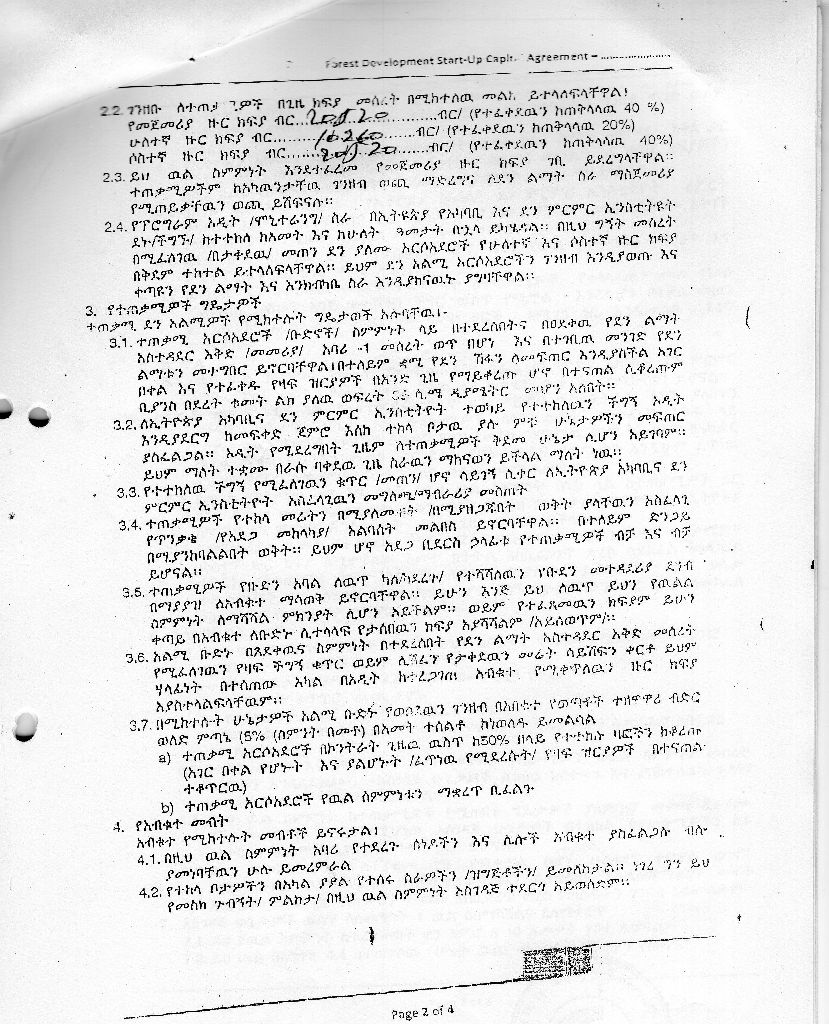 Forest Development Start-Up Capit. Agreement – .....................
2.2. ገንዘቡ ለተጠቃሚዎች በጊዜ ክፍያ መሰረት በሚከተለዉ መልክ ይተላለፍላቸዋል፤
የመጀመሪያ ዙር ክፍያ ብር... 20520 ...ብር/ (የተፈቀደዉን ከጠቅላላዉ 40 %)
ሁለተኛ ዙር ክፍያ ብር... 10260 ...ብር/ (የተፈቀደዉን ከጠቅላላዉ 20%)
ሶስተኛ ዙር ክፍያ ብር... 20520 ...ብር/ (የተፈቀደዉን ከጠቅላላዉ 40%)
2.3. ይህ ዉል ስምምነት እንደተፈረመ የመጀመሪያ ዙር ክፍያ ገቢ ይደረግላቸዋል።
ተጠቃሚዎችም ከአካዉንታቸዉ ገንዘብ ወጪ ማድረግና ለደን ልማት ስራ ማስጀመሪያ
የሚጠይቃቸዉን ወጪ ይሸፍናሉ።
2.4. የፕሮግራም ኦዲት /ሞኒተሪንግ/ ስራ በኢትዩጵያ የአካባቢ እና ደን ምርምር ኢንስቲትዩት
ደኑ/ችግኙ/ ከተተከለ ከአመት እና ከሁለት ዓመታት በኋላ ይካሄዳል። በዚህ ግኝት መሰረት
በሚፈለገዉ /በታቀደዉ/ መጠን ደን ያለሙ አርሶአደሮች የሁለተኛ እና ሶስተኛ ዙር ክፍያ
በቅደም ተከተል ይተላለፍላቸዋል። ይህም ደን አልሚ አርሶአደሮችን ገንዘብ እንዲያወጡ እና
ቀጣዩን የደን ልማት እና እንክብካቤ ስራ እንዲያከናዉኑ ያግዛቸዋል።
3. የተጠቃሚዎች ግዴታዎች
ተጠቃሚ ደን አልሚዎች የሚከተሉት ግዴታወች አሉባቸዉ፤-
3.1. ተጠቃሚ አርሶአደሮች /ቡድኖች/ ስምምነት ላይ በተደረሰበትና በፀደቀዉ የደን ልማት
አስተዳደር እቅድ /መመሪያ/ አባሪ -1 መሰረት ወጥ በሆነ እና በተገቢዉ መንገድ የደን
ልማቱን መተግበር ይኖርባቸዋል፤በተለይም ቋሚ የደን ሽፋን ለመፍጠር እንዲያስችል አገር
በቀል እና የተፈቀዱ የዛፍ ዝርያዎች በአንድ ጊዜ የማይቆረጡ ሆኖ በተናጠል ሲቆረጡም
ቢያንስ በደረት ቁመት ልክ ያለዉ ወፍረት ሴ.ሜ ዲያሜትር መሆን አለበት።
3.2. ለኢትዮጵያ አካባቢና ደን ምርምር ኢንስቲትዮት ተወካይ የተተከለዉን ችግኝ ኦዲት
እንዲያደርግ ከመፍቀድ ጀምሮ እስከ ተከላ ቦታዉ ያሉ ምቹ ሁኔታዎችን መፍጠር
ያስፈልጋል። ኦዲት የሚደረግበት ጊዜም ለተጠቃሚዎች ቅድመ ሁኔታ ሊሆን አይገባም።
ይህም ማለት ተቋሙ በራሱ ባቀደዉ ጊዜ ስራዉን ማከናወን ይችላል ማለት ነዉ።
3.3. የተተከለዉ ችግኝ የሚፈለገዉን ቁጥር /መጠን/ ሆኖ ሳይገኝ ሲቀር ለኢትዮጵያ አካባቢና ደን
ምርምር ኢንስቲትዮት አስፈላጊዉን መግለጫ/ማብራሪያ መስጠት
3.4. ተጠቃሚዎች የተከላ መሬትን በሚያለሙበት /በሚያዘጋጁበት ወቅት ያላቸዉን አስፈላጊ
የጥንቃቄ /የአደጋ መከላካያ/ አልባሳት መልበስ ይኖርባቸዋል። በተለይም ድንጋይ
በሚያንከባልልበት ወቅት። ይህም ሆኖ አደጋ ቢደርስ ኃላፊቱ የተጠቃሚዎች ብቻ እና ብቻ
ይሆናል።
3.5. ተጠቃሚዎች የቡድን አባል ለዉጥ ካለ/ካደረጉ/ የተሻሻለዉን የቡድን መተዳደሪያ ደንብ
በማያያዝ ለአብቁተ ማሳወቅ ይኖርባቸዋል። ይሁን እንጅ ይህ ለዉጥ ይህን የዉልል
ስምምነት ለማሻሻል ምክንያት ሊሆን አይችልም። ወይም የተፈጸመዉን ክፍያም ይሁን
ቀጣይ በአብቁተ ለቡድኑ ሊተላላፍ የታሰበዉን ክፍያ አያሻሽልም /አይለወጥም/።
3.6. አልሚ ቡድኑ በጸደቀዉና ስምምነት በተደረሰበት የደን ልማት አስተዳደር እቅድ መሰረት
የሚፈለገዉን የዛፍ ችግኝ ቁጥር ወይም ሊሸፈን የታቀደዉን መሬት ሳይሸፍን ቀርቶ ይህም
ሃላፊነት በተሰጠው አካል በኦዲት ከተረጋገጠ አብቁተ የሚቀጥለዉን ዙር ክፍያ
አያስተላልፍላቸዉም።
3.7. በሚከተሉት ሁኔታዎች አልሚ ቡድኑ የወሰደዉን ገንዘብ በአብቁተ የወጣቶች ተዘዋዋሪ ብድር
ወለድ ምጣኔ (8% (ስምንት በመቶ) በአመት ተሰልቶ ከነወለዱ ይመልሳል
a) ተጠቃሚ አርሶአደሮች በኮንትራት ጊዜዉ ዉስጥ ከ50% በላይ የተተከሉ ዛፎችን ከቆረጡ
(አገር በቀል የሆኑት እና ያልሆኑት /ፈጥነዉ የሚደረሱት/ የዛፍ ዝርያዎች በተናጠል
ተቆጥርዉ)
b) ተጠቃሚ አርሶአደሮች የዉል ስምምነቱን ማቋረጥ ቢፈልጉ
4. የአብቁተ መብት
አብቁተ የሚከተሉት መብቶች ይኖሩታል፤
4.1. በዚህ ዉል ስምምነት አባሪ የተደረጉ ሰነዶችን እና ሌሎች አብቁተ ያስፈልጋሉ ብሎ
ያመነባቸዉን ሁሉ ይመረምራል
4.2. የተከላ ቦታዎችን በአካል ያያል የተሰሩ ስራዎችን /ዝግጅቶችን/ ይመለከታል። ነገረ ግን ይህ
የመስክ ጉብኝት/ ምልከታ/ በዚህ ዉል ስምምነት አስገዳጅ ተደርጎ አይወሰድም።
Page 2 of 4